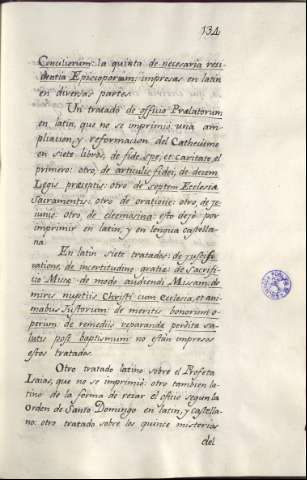 134
Conciliorum: la quinta de necesaria resi
dentia Epicoporum: impresas en latin
en diversas partes.
Un tratado de officio Prælatorum
en latin, que no se imprimió: una am
pliacion y reformacion del Cathecismo
en siete libros, de fide, spe, et caritate el
primero: otro, de articulis fidei, de decem
Legis præceptis: otro de septem Ecclesiæ
Sacramentis: otro de oratione: otro, de je
iunio: otro, de eleemosina: esto dejó por
imprimir en latin, y en lengua castella
na.
En latin siete tratados: de justifi
catione, de incertitudine gratiæ: de Sacrifi
cio Missæ: de modo audiendi Missam: de
miris nuptiis Christi cum ecclesia, et ani
mabus Justorum: de meritis bonorum o
perum: de remediis reparandæ perditæ sa
lutis post baptismum: no están impresos
estos tratados.
Otro tratado latino sobre el Profeta
Isaias, que no se imprimió: otro tambien la
tino de la forma de rezar el oficio segun la
orden de Santo Domingo en latin, y castella
no: otro tratado sobre los quince misterios
del